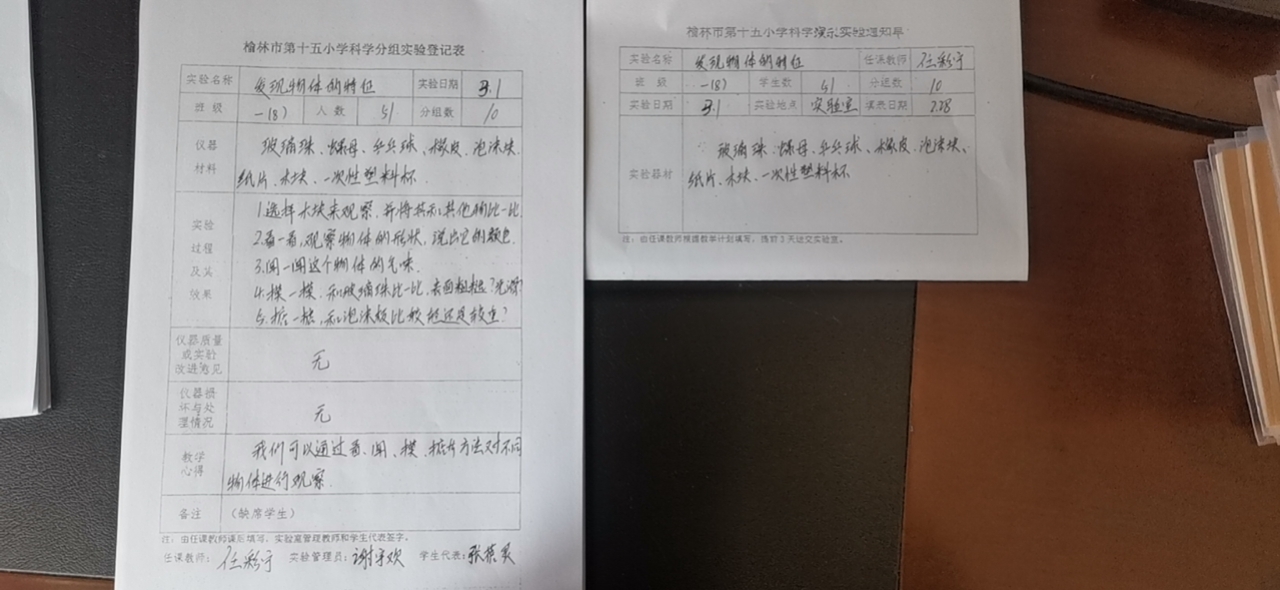 榆林市第十五小学科学分组实验登记表
实验名称 发现物体的特征 实验日期 3.1
班 级 一(8) 人 数 51 分组数 10
仪器 材料
玻璃珠、螺母、乒乓球、橡皮、泡沫块、
纸片、木块、一次性塑料杯
实验 过程 及其 效果
1.选择木块来观察,并将其和其他物比一比
2.看一看,观察物体的形状,说出它的颜色
3.闻一闻这个物体的气味.
4.摸一摸,和玻璃珠比一比,表面粗糙?光滑?
5.掂一掂,和泡沫块比较轻还是较重?
仪器质量
或实验
改进意见
无
仪器损
坏与处
理情况
无
教学
心得
我们可以通过看、闻、摸、掂等方法对不同
物体进行观察.
备注 (缺席学生)
注:由任课教师课后填写,实验室管理教师和学生代表签字。
任课教师: 任彩宁 实验管理员: 谢宇欢 学生代表:
榆林市第十五小学科学演示实验通知单
实验名称 发现物体的特征 任课教师 任彩宁
班 级 一(8) 学生数 51 分组数 10
实验日期 3.1 实验地点 实验室 填表日期 2.28
实验器材
玻璃珠、螺母、乒乓球、橡皮、泡沫块、
纸片、木块、一次性塑料杯
注:由任课教师根据教学计划填写,提前3天送交实验室。